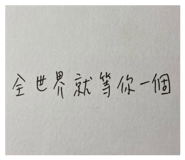 全世界就等你一個